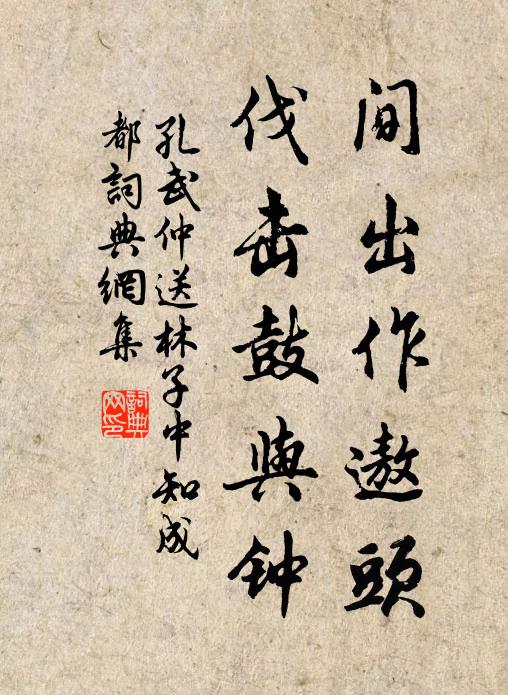 间出作遨頭
伐击鼓與钟
孔武仲送林子中知成
都詞典網集
詞典
网印